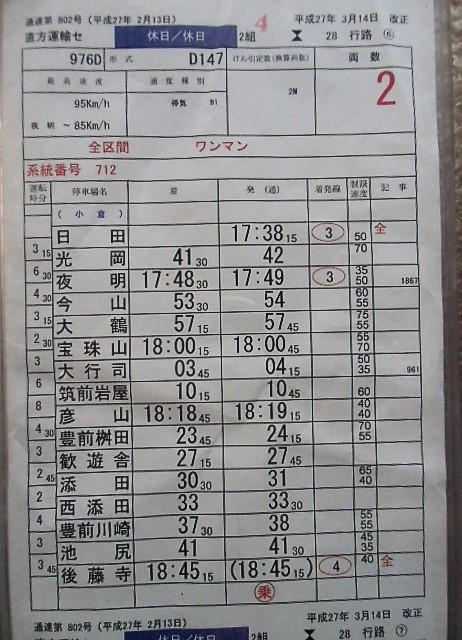 通達第 802号 (平成27年 2月13日) 4 平成27年 3月14日 改正
直方運輸セ 休日/休日 2組 28 行路 ⑥
976D 形式 D147 けん引定数(換算両数) 両数
最高速度 速度種別 2
95Km/h 停気 B1 2N
夜明 ~85Km/h
全区間 ワンマン
系統番号 712
運転時分 停車場名 着 発 (通) 着発線 制限速度 記事
(小倉)
日田 17:38 15 3 50 全
3 15 光岡 41 30 42 70
6 30 夜明 17:48 30 17:49 3 35 50 1867
4 30 今山 53 30 54 60 55
3 15 大鶴 57 15 57 45 75 55
2 30 宝珠山 18:00 15 18:00 45 55 70
3 大行司 03 45 04 15 50 35 961
6 筑前岩屋 10 15 10 45 60
8 彦山 18:18 45 18:19 15 40 40
4 30 豊前桝田 23 45 24 15 70 55
3 歓遊舎 27 15 27 45
2 45 添田 30 30 31 65 40
2 西添田 33 33 30
4 豊前川崎 37 30 38 55 55
3 池尻 41 41 30 45 35
3 45 後藤寺 18:45 15 (18:45 15) 4 40 全
乗
通達第 802号 (平成27年 2月13日) 平成27年 3月14日 改正
休日/休日 2組 28 行路 ⑦